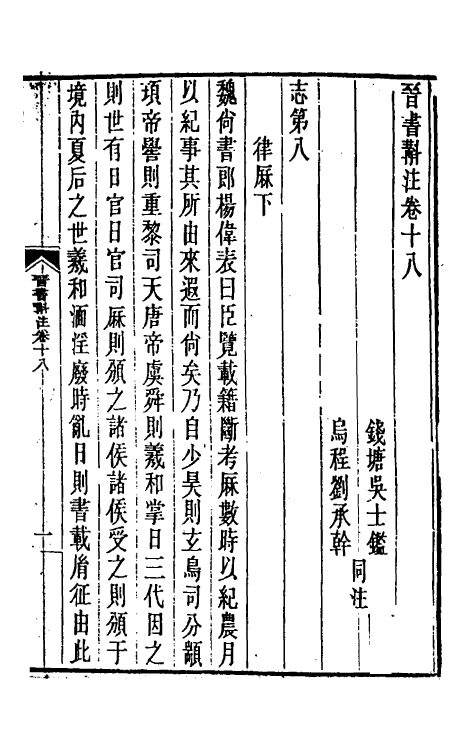 晉書斠注卷十八
錢塘吳士鑑
烏程劉承幹
同注
志第八
律厤下
魏尙書郎楊偉表曰臣覽載籍斷考厤數時以紀農月
以紀事其所由來遐而尙矣乃自少昊則玄鳥司分顓
頊帝嚳則重黎司天唐帝虞舜則羲和掌日三代因之
則世有日官日官司厤則頒之諸侯諸侯受之則頒于
境內夏后之世羲和湎淫廢時亂日則書載胤征由此
晉書斠注卷十八
一